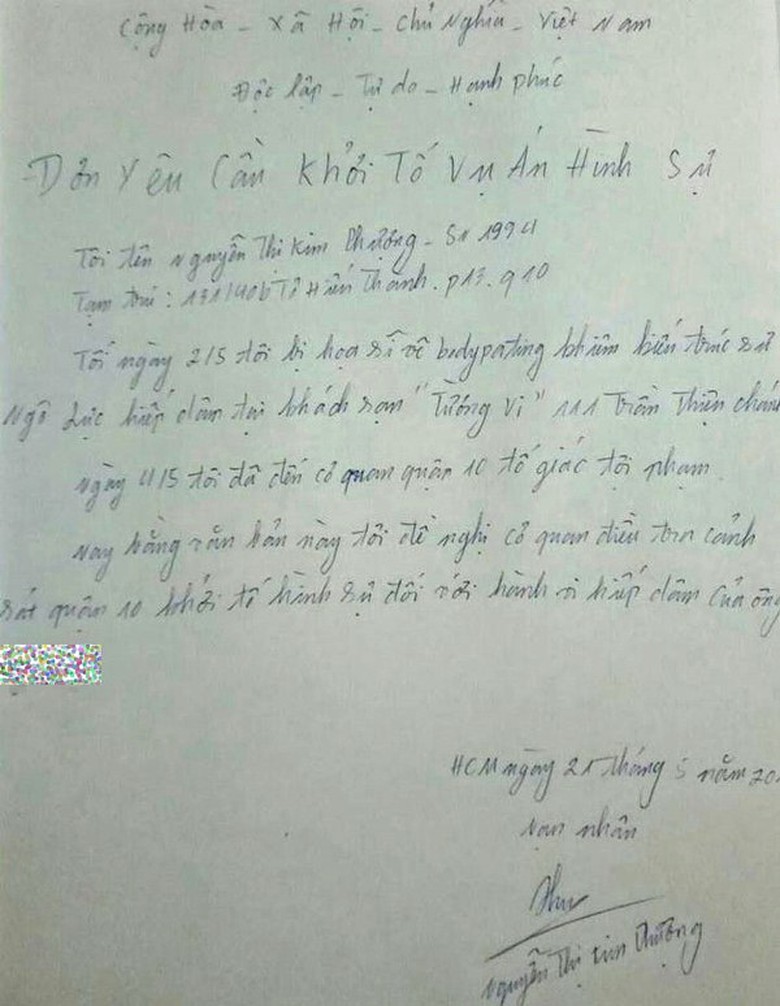 Cộng Hòa - Xã Hội - Chủ Nghĩa - Việt Nam
Độc lập - Tự do - Hạnh phúc
Đơn Yêu Cầu Khởi Tố Vụ Án Hình Sự
Tôi tên Nguyễn Thị Kim Phượng - Sn 1994
Tạm trú: 131/40b Tô Hiến Thành. p13. q10
Tối ngày 2/5 tôi bị họa sĩ vẽ bodypating khiêm kiến trúc sư
Ngô Lực hiếp dâm tại khách sạn "Tường Vi" 111 Trần Thiện chánh
Ngày 4/5 tôi đã đến cơ quan quận 10 tố giác tội phạm.
Nay bằng văn bản này tôi đề nghị cơ quan điều tra cảnh
sát quận 10 khởi tố hình sự đối với hành vi hiếp dâm của ông
HCM ngày 21 tháng 5 năm 20
Nạn nhân
Nguyễn Thị Kim Phượng